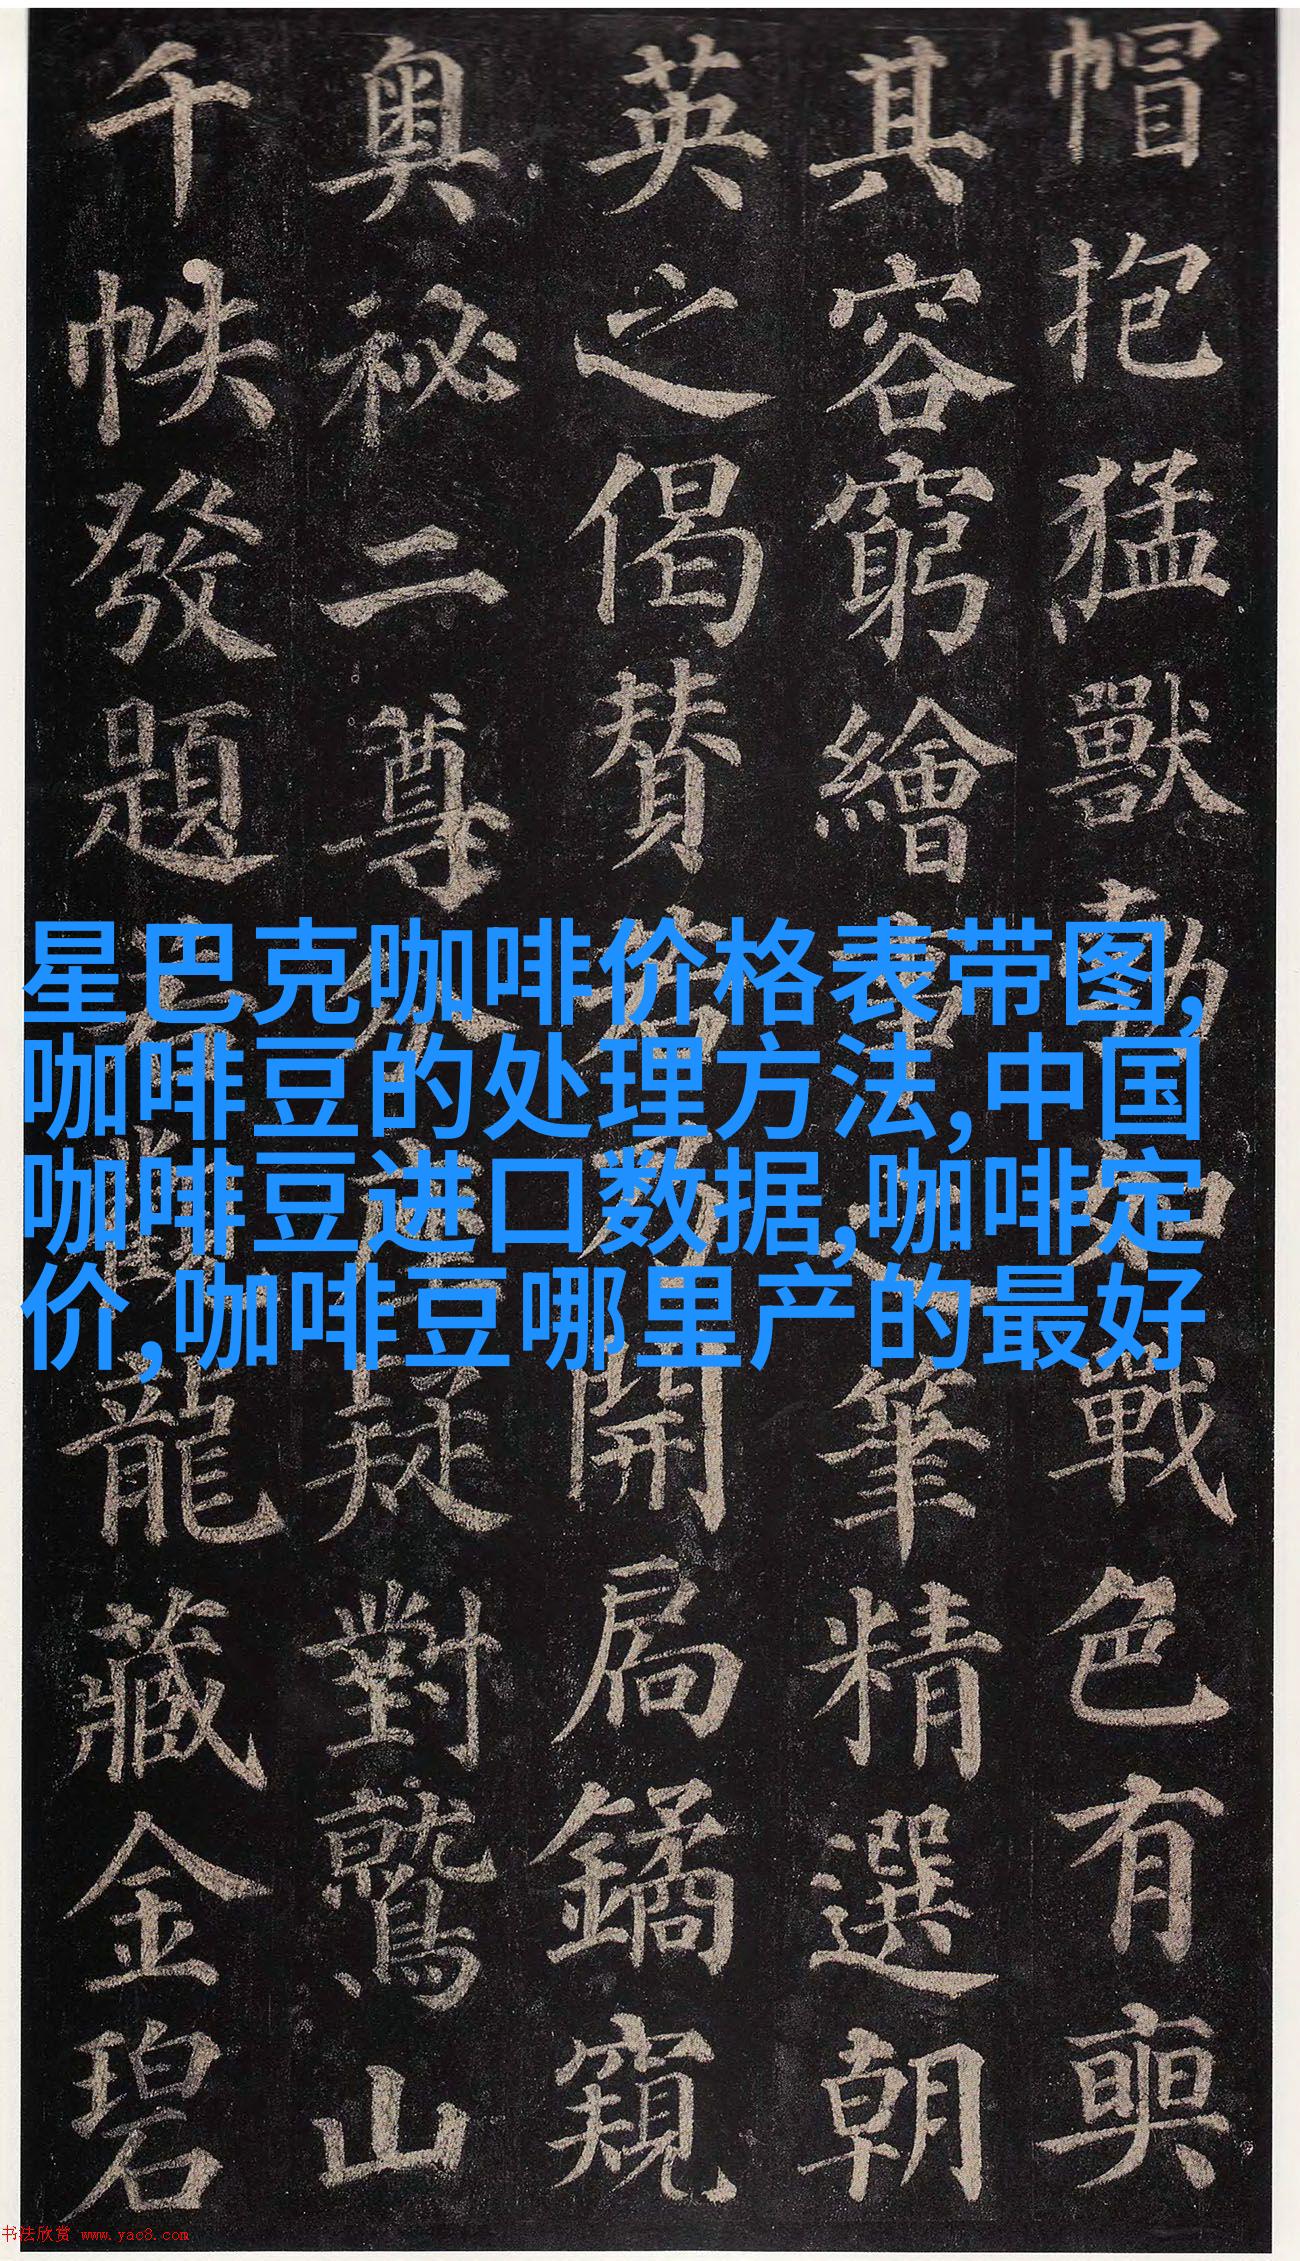 帽抱猛獸勃如戰色有奭
其容窮繪事之筆精選朝
英之偈贊若乃開扃鐍窺
奧祕二尊分座疑對鷲山
千帙發題若觀龍藏金碧
星巴克咖啡价格表带图,
咖啡豆的处理方法,中国
咖啡豆进口数据,咖啡定
价,咖啡豆哪里产的最好
书法欣赏 www.yac8.com